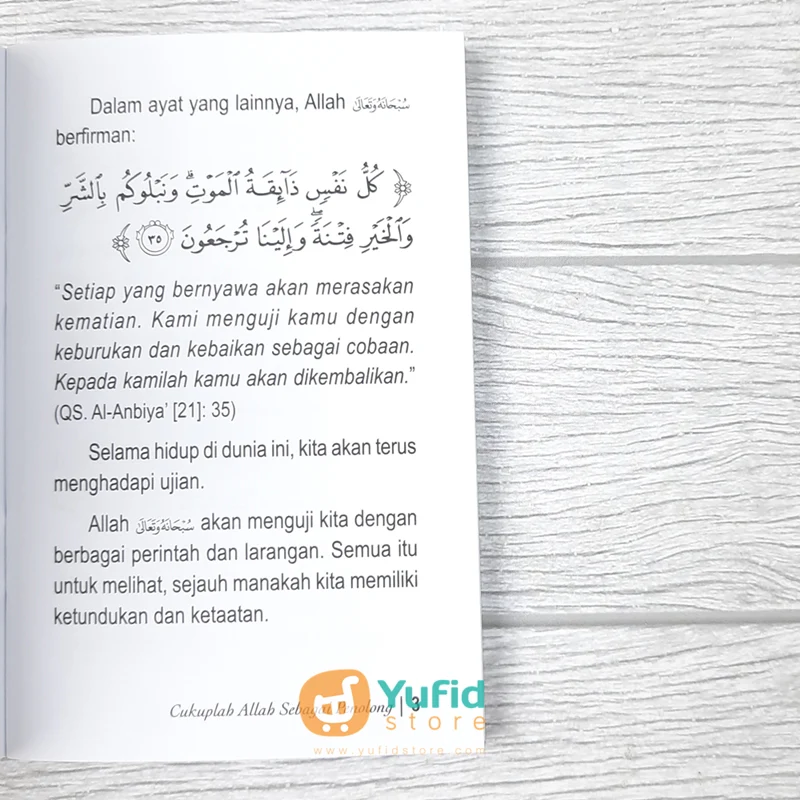 Dalam ayat yang lainnya, Allah سُبْحَانَهُ وَتَعَالَى
berfirman:
﴿ كُلُّ نَفْسٍ ذَآئِقَةُ ٱلْمَوْتِ ۗ وَنَبْلُوكُم بِٱلشَّرِّ
وَٱلْخَيْرِ فِتْنَةً ۖ وَإِلَيْنَا تُرْجَعُونَ ٣٥ ﴾
“Setiap yang bernyawa akan merasakan
kematian. Kami menguji kamu dengan
keburukan dan kebaikan sebagai cobaan.
Kepada kamilah kamu akan dikembalikan.”
(QS. Al-Anbiya’ [21]: 35)
Selama hidup di dunia ini, kita akan terus
menghadapi ujian.
Allah سُبْحَانَهُ وَتَعَالَى akan menguji kita dengan
berbagai perintah dan larangan. Semua itu
untuk melihat, sejauh manakah kita memiliki
ketundukan dan ketaatan.
Cukuplah Allah Sebagai Penolong | 3
Yufid
store
www.yufidstore.com